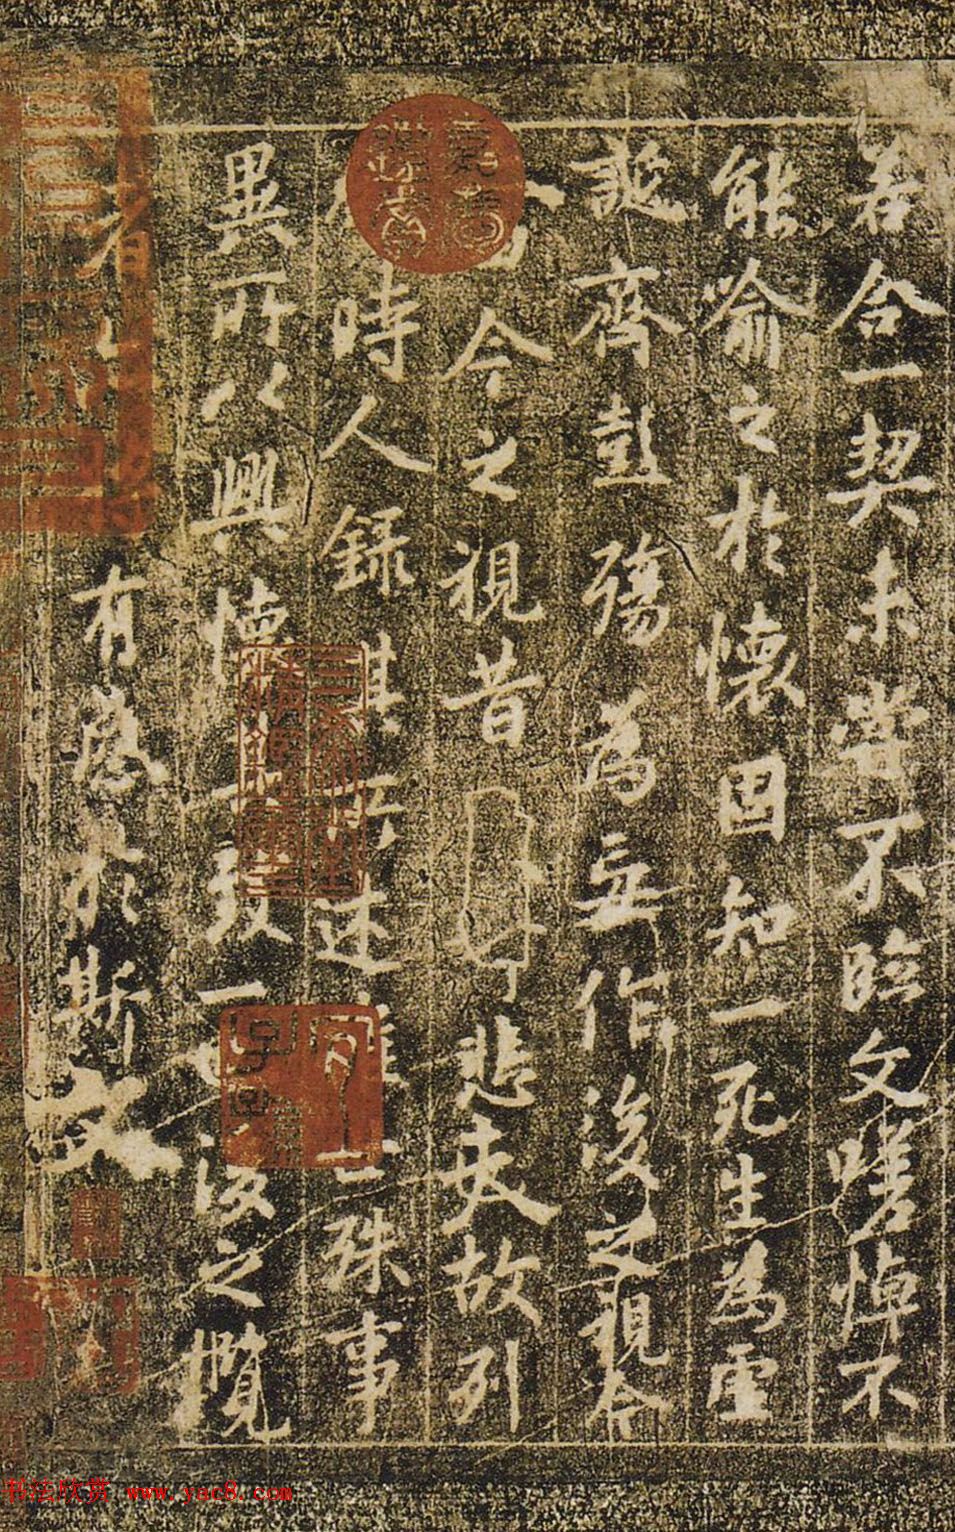 若合一契未嘗不臨文嗟悼不
能喻之於懷固知一死生為虛
誕齊彭殤為妄作後之視今
由今之視昔悲夫故列
時人錄其所述殊事
異所以興懷致一也後之攬
者有感於斯文
书法欣赏 www.yac8.com